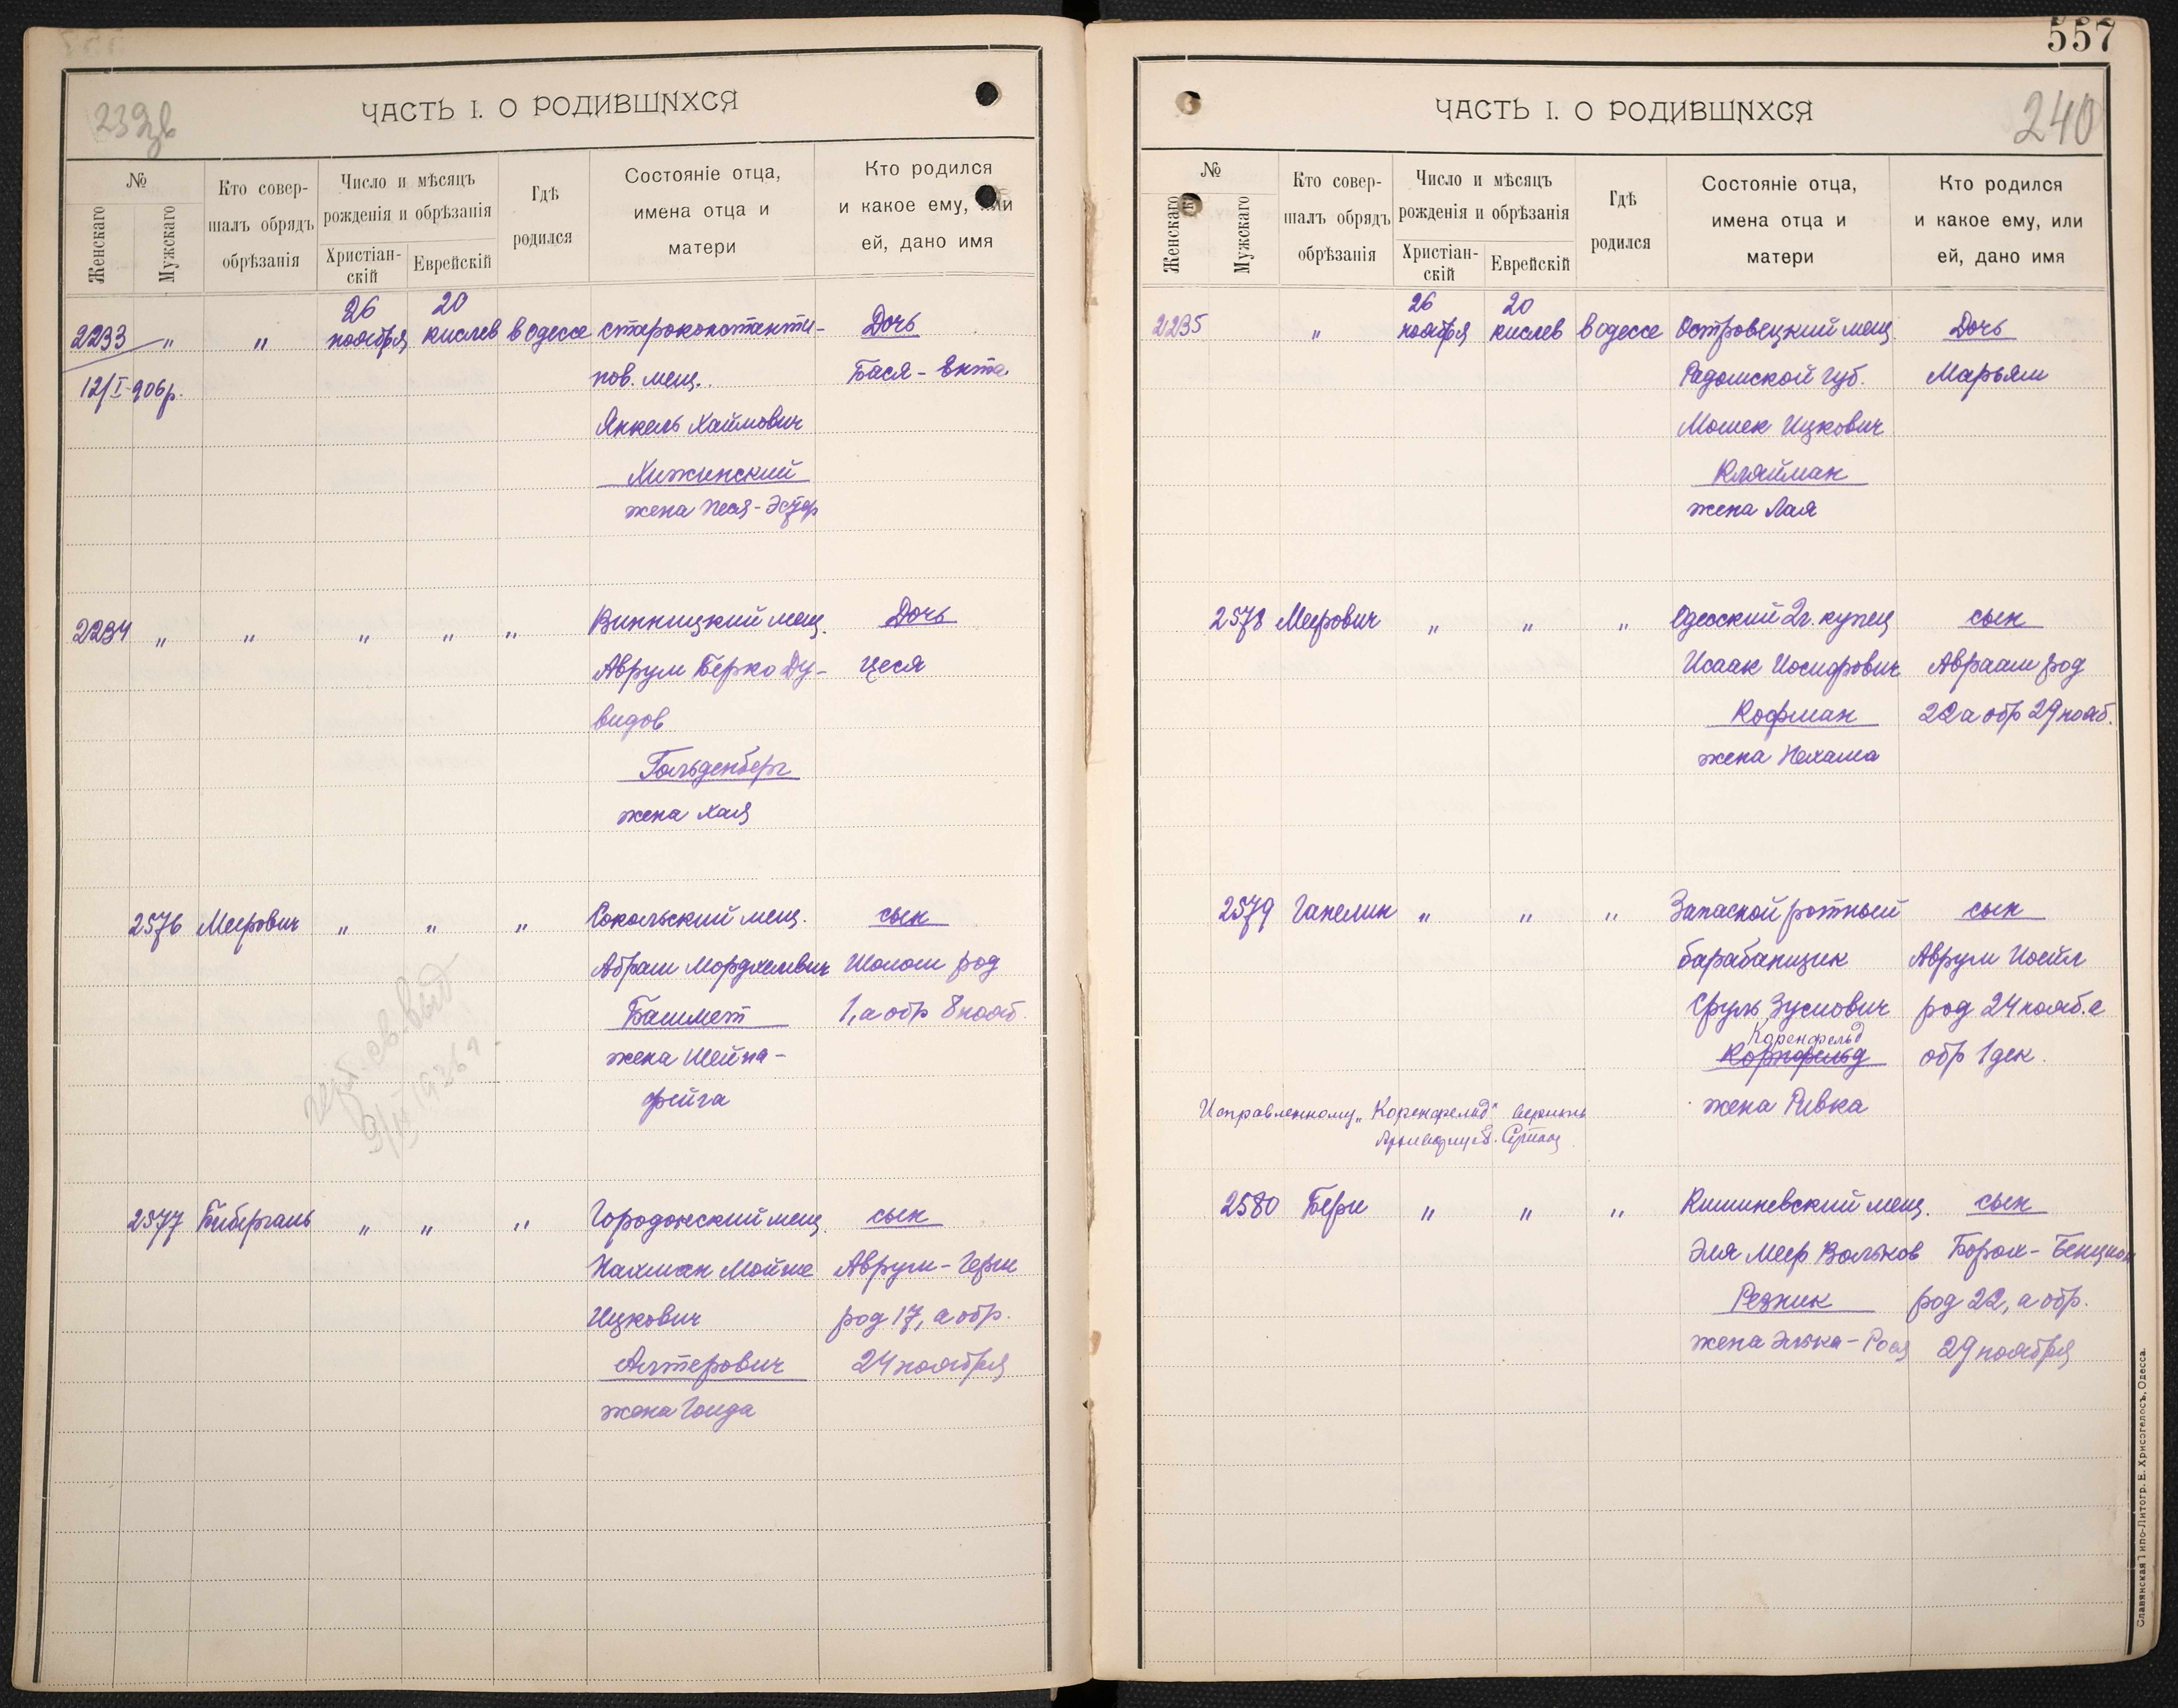 557
239
ЧАСТЬ I. О РОДИВШИХСЯ
№
Женскаго
Мужскаго
Кто совер-
шалъ обрядъ
обрѣзанія
Число и мѣсяцъ
рожденія и обрѣзанія
Христіан-
скій
Еврейскій
Гдѣ
родился
Состояніе отца,
имена отца и
матери
Кто родился
и какое ему, или
ей, дано имя
26 20
2233 " " ноября кислев в Одессе староконстанти- Дочь
12/I-906р. нов. мещ. Бася-Ента
Янкель Хаймович
Хижинский
жена Песя-Эстер
2234 " " " " " Винницкий мещ. Дочь
Аврум Берко Ду- Цеся
видов
Гольденберг
жена Хая
2576 Меерович " " " Сокольский мещ. сын
Абрам Мордхелевич Шолом род
Башмет 1, а обр 8 нояб.
жена Шейна-
фейга
2577 Бибергаль " " " Городокский мещ. сын
Нахман Мойше Аврум-Герш
Ицкович род 17, а обр.
Алтерович 24 ноября
жена Голда
240
ЧАСТЬ I. О РОДИВШИХСЯ
№
Женскаго
Мужскаго
Кто совер-
шалъ обрядъ
обрѣзанія
Число и мѣсяцъ
рожденія и обрѣзанія
Христіан-
скій
Еврейскій
Гдѣ
родился
Состояніе отца,
имена отца и
матери
Кто родился
и какое ему, или
ей, дано имя
26 20
2235 " ноября кислев в Одессе Островецкий мещ. Дочь
Радомской губ. Марьям
Мошек Ицкович
Кляйман
жена Лая
2578 Меерович " " " Одесский 2г. купец сын
Исаак Иосифович Авраам род
Кофман 22 а обр 29 нояб.
жена Нехама
2579 Гапелин " " " Запасной ротный сын
барабанщик Аврум Иойл
Сруль Зусмович род 24 нояб. а
Коренфельд
Корнфельд обр 1 дек.
жена Ривка
Исправленному "Коренфельд" верить
2580 Бери " " " Кишиневский мещ. сын
Эля Меер Вольков Борох-Бенцион
Резник род 22, а обр.
жена Элька-Рося 29 ноября
Славянская Типо-Литогр. Е. Хрисогелосъ, Одесса.